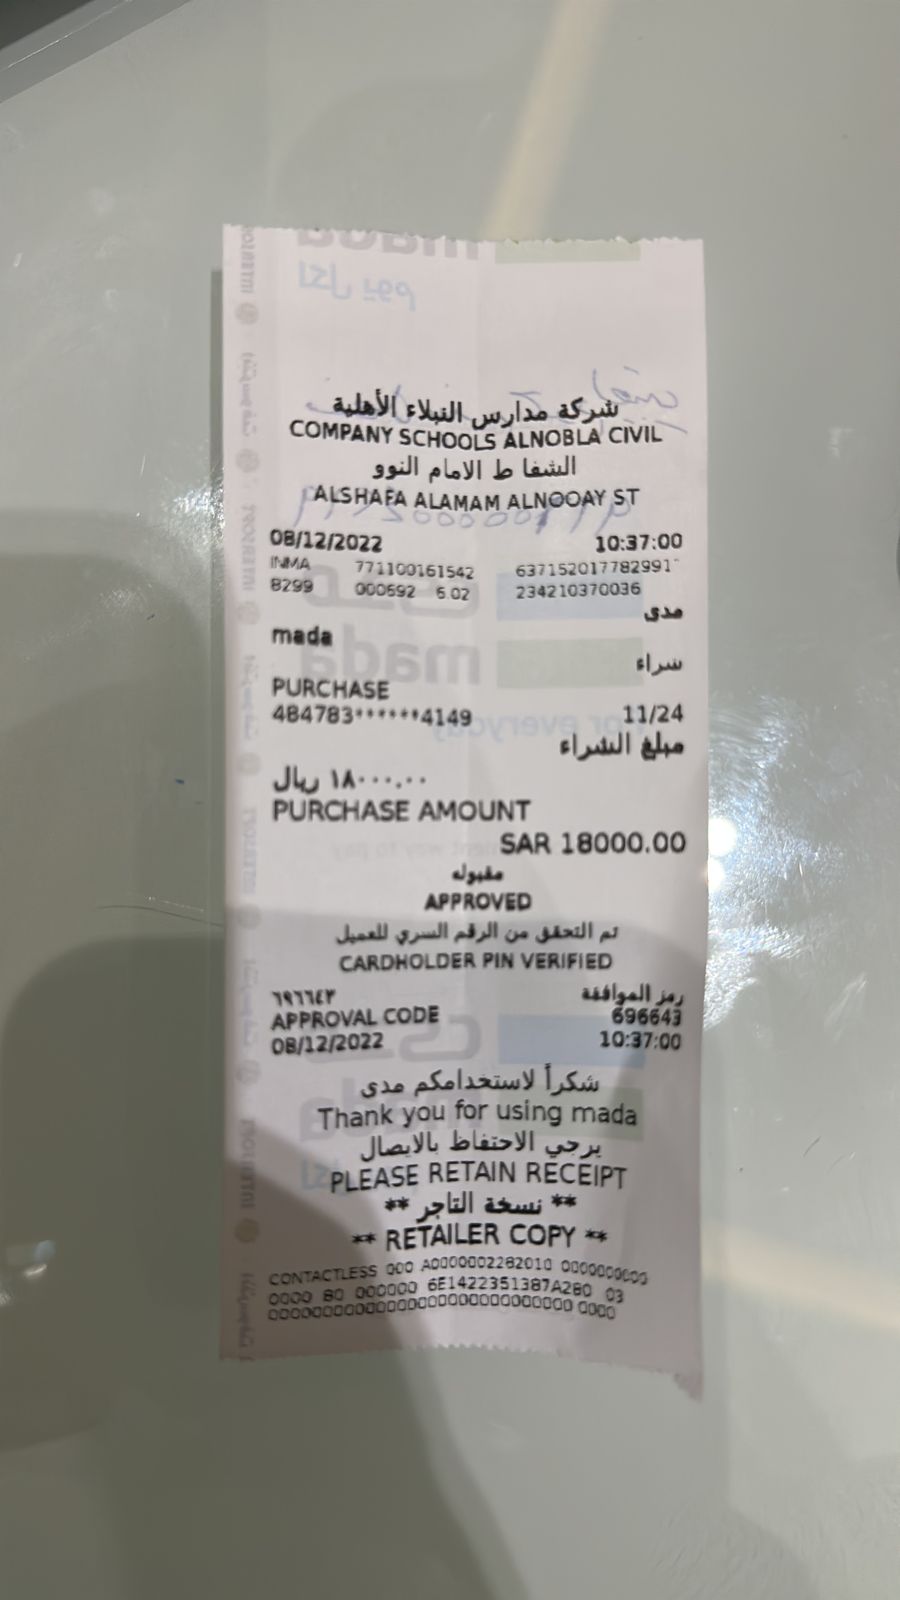 شركة مدارس النبلاء الأهلية
COMPANY SCHOOLS ALNOBLA CIVIL
الشفا ط الامام النوو
ALSHAFA ALAMAM ALNOOAY ST
08/12/2022 10:37:00
INMA 771100161542 637152017782991
8299 000692 6.02 234210370036
مدى
mada
شراء
PURCHASE
484783******4149 11/24
مبلغ الشراء
١٨٠٠٠.٠٠ ريال
PURCHASE AMOUNT
SAR 18000.00
مقبوله
APPROVED
تم التحقق من الرقم السري للعميل
CARDHOLDER PIN VERIFIED
رمز الموافقة ٦٩٦٦٤٣
APPROVAL CODE 696643
08/12/2022 10:37:00
شكراً لاستخدامكم مدى
Thank you for using mada
يرجي الاحتفاظ بالايصال
PLEASE RETAIN RECEIPT
** نسخة التاجر **
** RETAILER COPY **
CONTACTLESS 000 A0000002282010 0000000000
0000 80 000000 6E1422351387A280 03